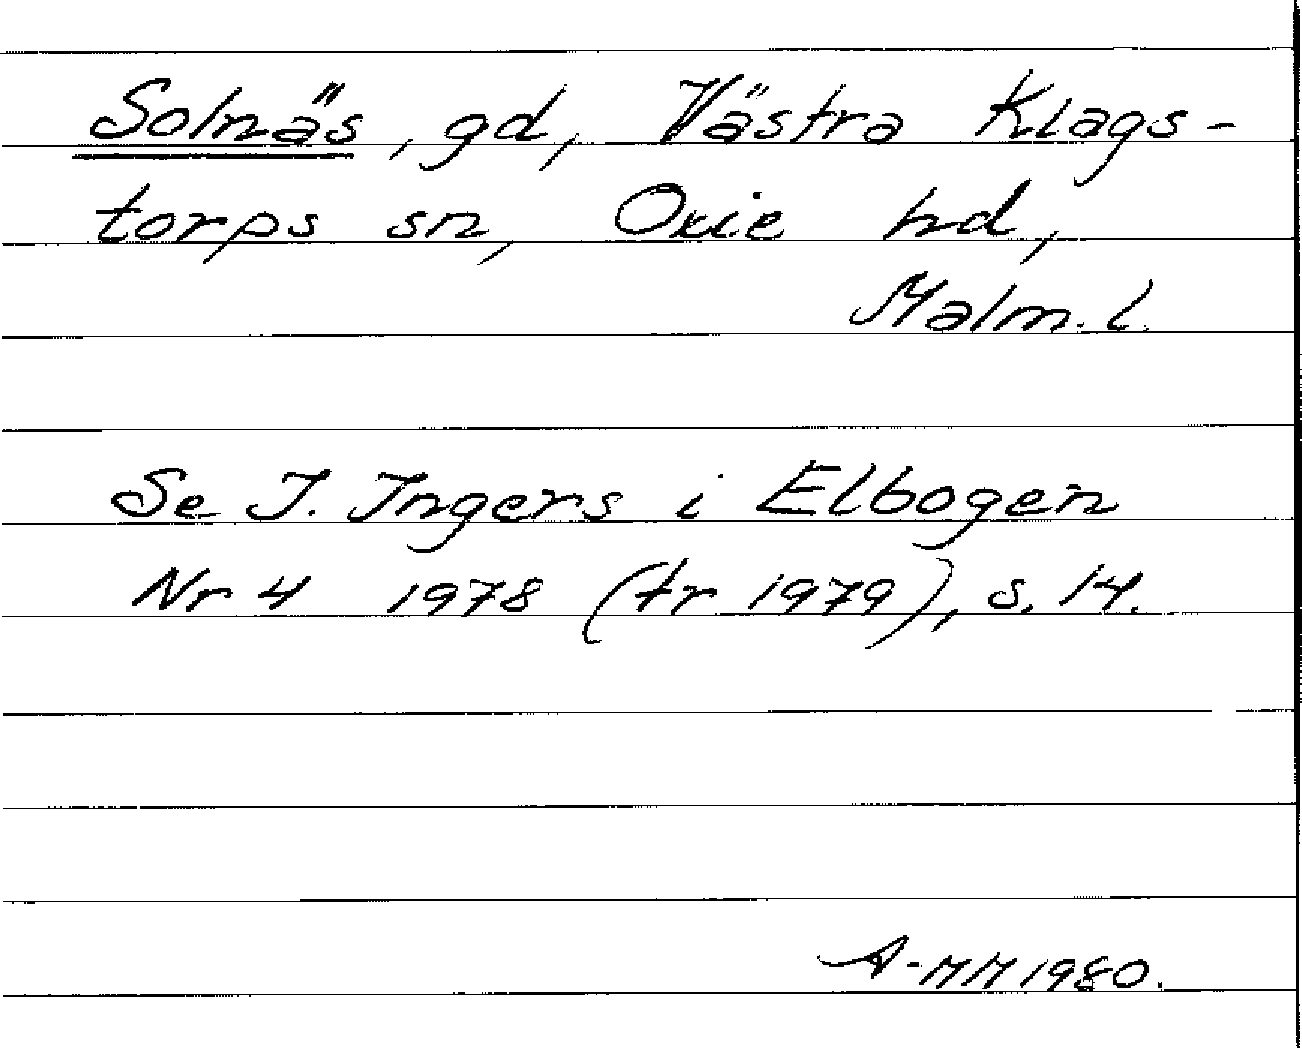 Solnäs, gd, Västra Klags-
torps sn, Oxie hd,
Malm. l.
Se I. Ingers i Elbogen
Nr 4 1978 (tr 1979), s. 14.
A-MM 1980.